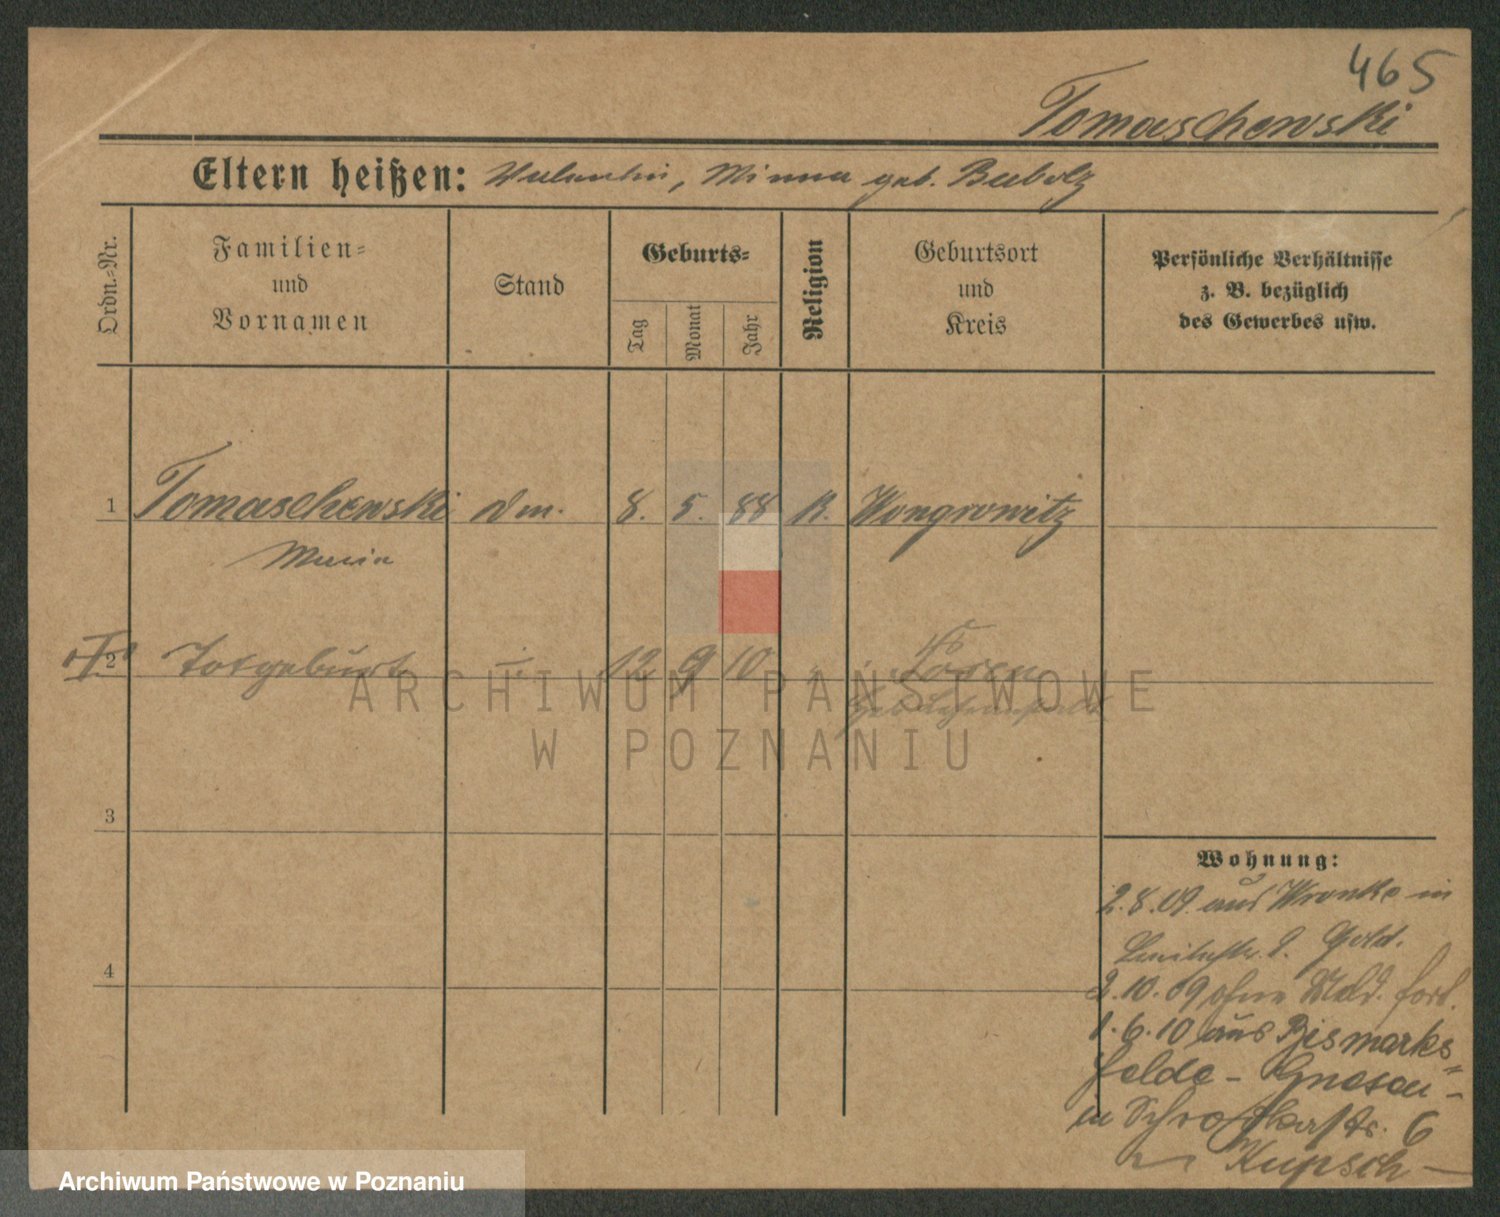 465
Tomaschewski
Eltern heißen: Valentin, Minna geb. Bubolz
Ordn.-Nr.
Familien- und Vornamen
Stand
Geburts-
Tag
Monat
Jahr
Religion
Geburtsort und Kreis
Persönliche Verhältnisse
z. B. bezüglich
des Gewerbes usw.
1 Tomaschewski Dm. 8. 5. 88 K. Wongrowitz
Maria
I. 2 Totgeburt 12 9 10 Posen
3
4
Wohnung:
2.8.09. aus Wronke in
8.
2.10.09 ohne Meld. fort.
1.6.10 aus Bismarks-
felde - Gnesen -
in Schrodkastr. 6
Kupsch
ARCHIWUM PAŃSTWOWE
W POZNANIU
Archiwum Państwowe w Poznaniu